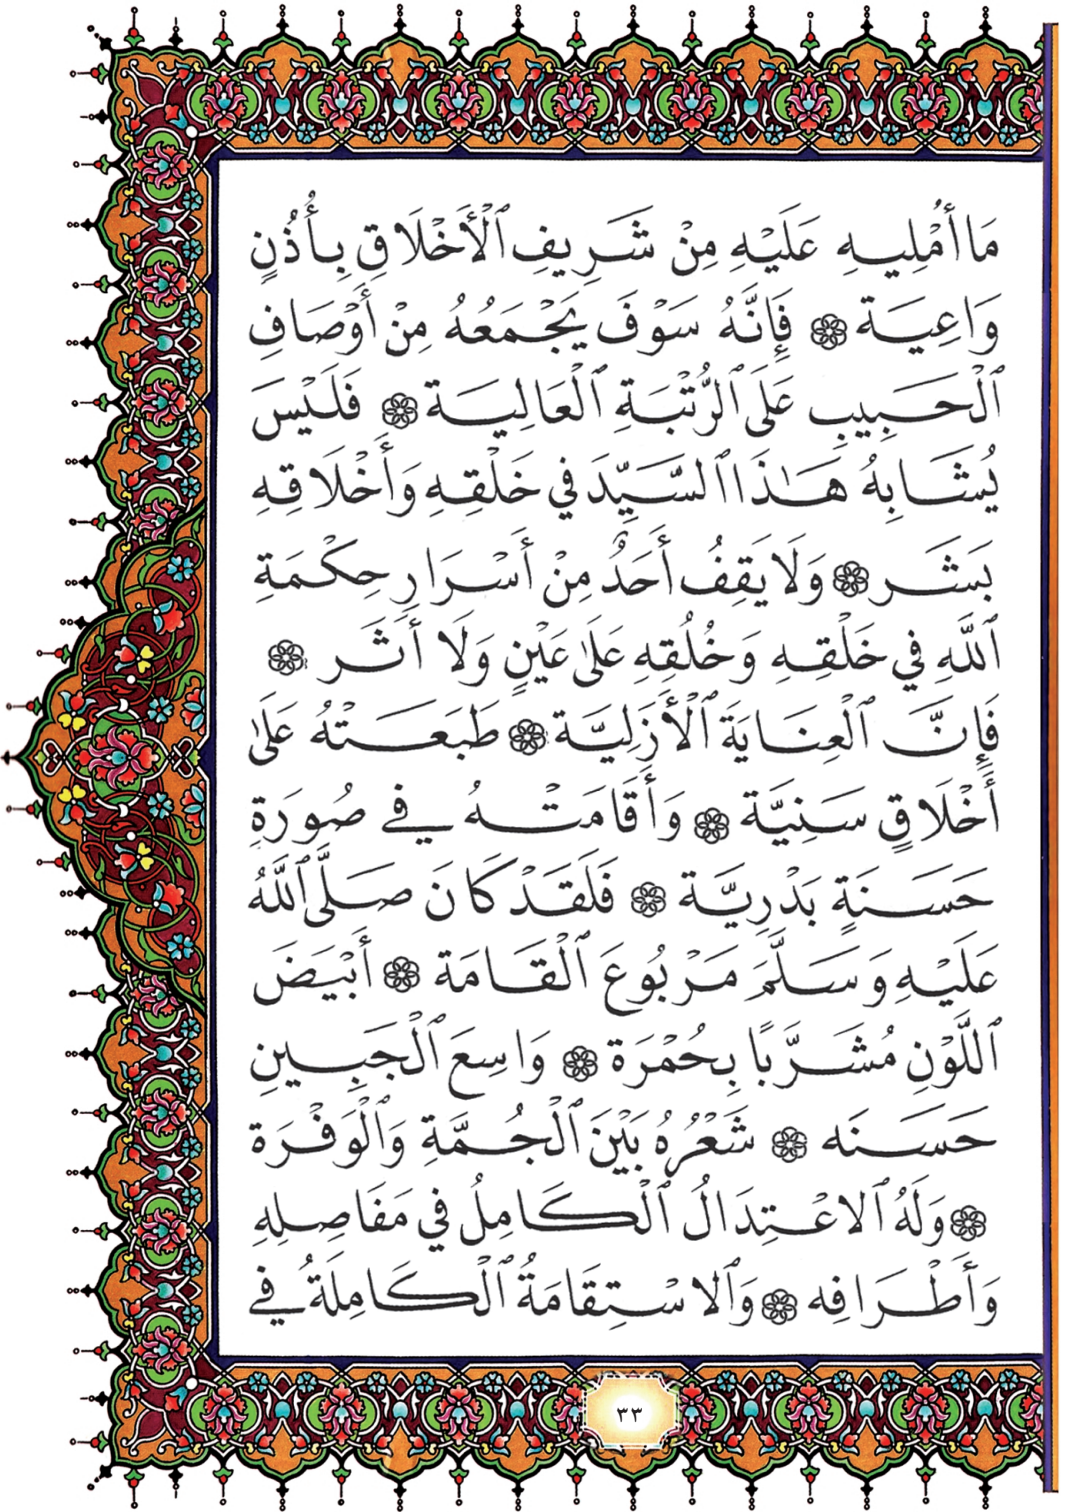 مَا أُمْلِيهِ عَلَيْهِ مِنْ شَرِيفِ ٱلْأَخْلَاقِ بِأُذُنٍ
وَاعِيَة ۞ فَإِنَّهُ سَوْفَ يَجْمَعُهُ مِنْ أَوْصَافِ
ٱلْحَبِيبِ عَلَى ٱلرُّتْبَةِ ٱلْعَالِيَة ۞ فَلَيْسَ
يُشَابِهُ هَٰذَا ٱلسَّيِّدَ فِي خَلْقِهِ وَأَخْلَاقِهِ
بَشَر ۞ وَلَا يَقِفُ أَحَدٌ مِنْ أَسْرَارِ حِكْمَةِ
ٱللَّهِ فِي خَلْقِهِ وَخُلُقِهِ عَلَىٰ عَيْنٍ وَلَا أَثَر ۞
فَإِنَّ ٱلْعِنَايَةَ ٱلْأَزَلِيَّة ۞ طَبَعَتْهُ عَلَىٰ
أَخْلَاقٍ سَنِيَّة ۞ وَأَقَامَتْهُ فِي صُورَةٍ
حَسَنَةٍ بَدْرِيَّة ۞ فَلَقَدْ كَانَ صَلَّى ٱللَّهُ
عَلَيْهِ وَسَلَّمَ مَرْبُوعَ ٱلْقَامَة ۞ أَبْيَضَ
ٱللَّوْنِ مُشَرَّبًا بِحُمْرَة ۞ وَاسِعَ ٱلْجَبِينِ
حَسَنَه ۞ شَعْرُهُ بَيْنَ ٱلْجُمَّةِ وَٱلْوَفْرَة
۞ وَلَهُ ٱلِاعْتِدَالُ ٱلْكَامِلُ فِي مَفَاصِلِهِ
وَأَطْرَافِه ۞ وَٱلِاسْتِقَامَةُ ٱلْكَامِلَةُ فِي
٣٣